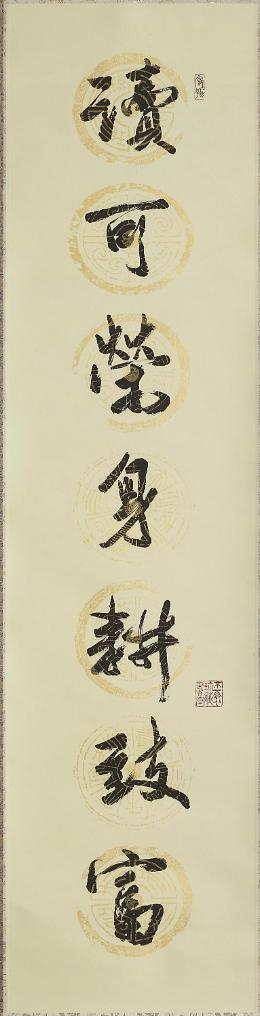 讀可榮身耕致富